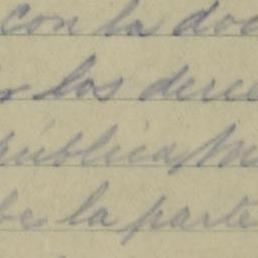 con la doc
los derec
pública, M
be la parte